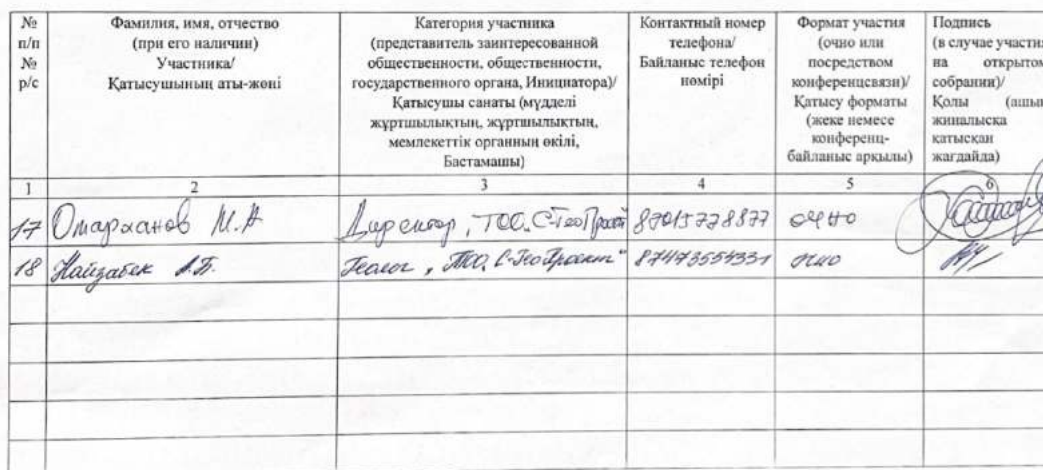 № п/п № р/с
Фамилия, имя, отчество
(при его наличии)
Участника/
Қатысушының аты-жөні
Категория участника
(представитель заинтересованной
общественности, общественности,
государственного органа, Инициатора)/
Қатысушы санаты (мүдделі
жұртшылықтың, жұртшылықтың,
мемлекеттік органның өкілі,
Бастамашы)
Контактный номер
телефона/
Байланыс телефон
нөмірі
Формат участия
(очно или
посредством
конференцсвязи)/
Қатысу форматы
(жеке немесе
конференц-
байланыс арқылы)
Подпись
(в случае участия
на открытом
собрании)/
Қолы (ашық
жиналысқа
қатысқан
жағдайда)
1 2 3 4 5 6
17 Омарханов М.А Директор, ТОО, С-ГеоПроект 87015778877 очно
18 Найзабек А.Б. Геолог „ТОО, С-ГеоПроект" 87473554331 очно